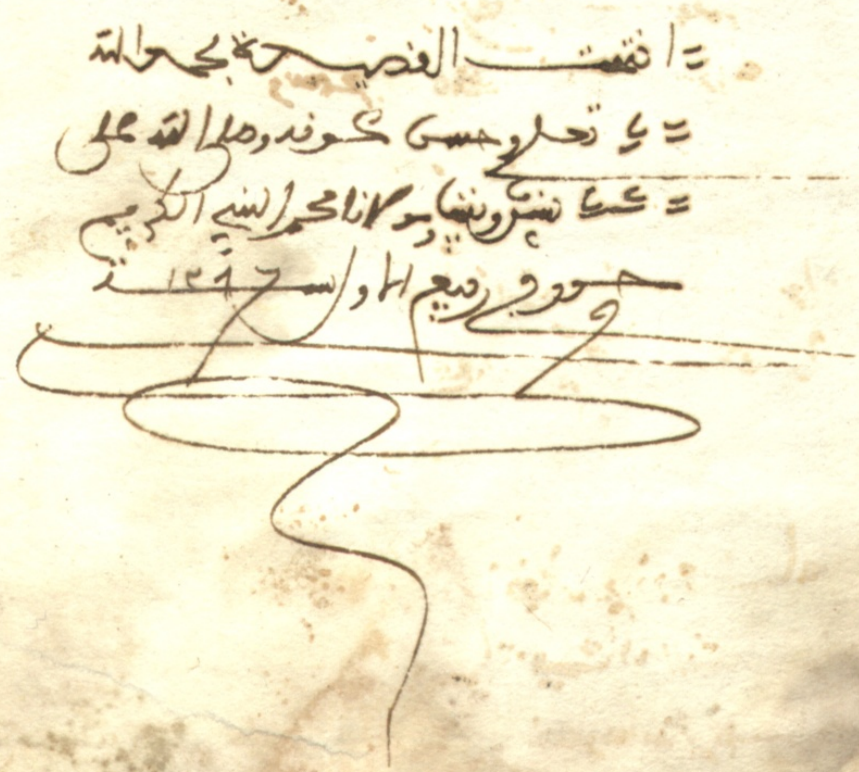 انتهت القصيدة بحمد الله
تعلى وحسن عونه وصلى الله على
ومولانا محمد النبي الكريم
في ربيع الاول سنة ١٢٩٦